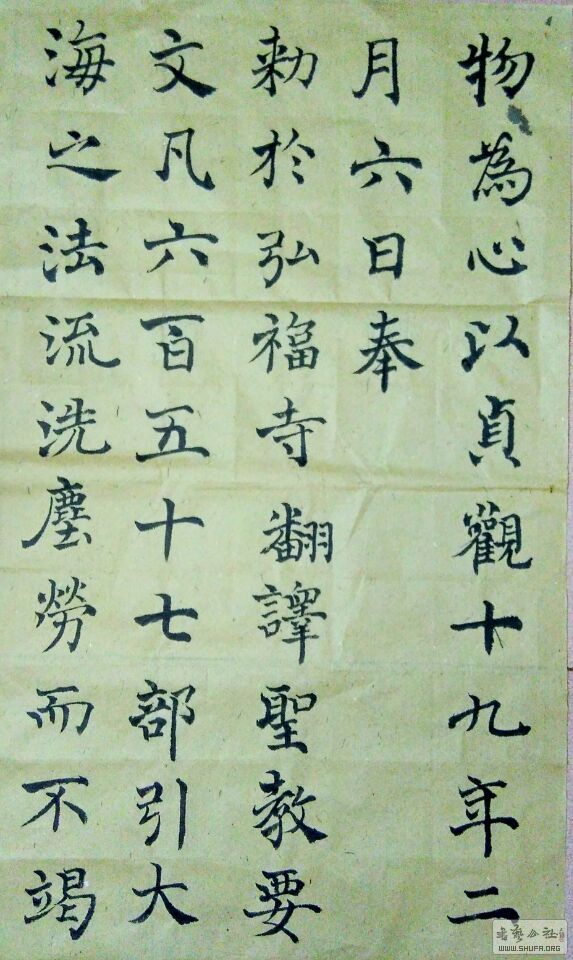 物為心以貞觀十九年二
月六日奉
勑於弘福寺翻譯聖教要
文凡六百五十七部引大
海之法流洗塵勞而不竭
書藝公社
WWW.SHUFA.ORG